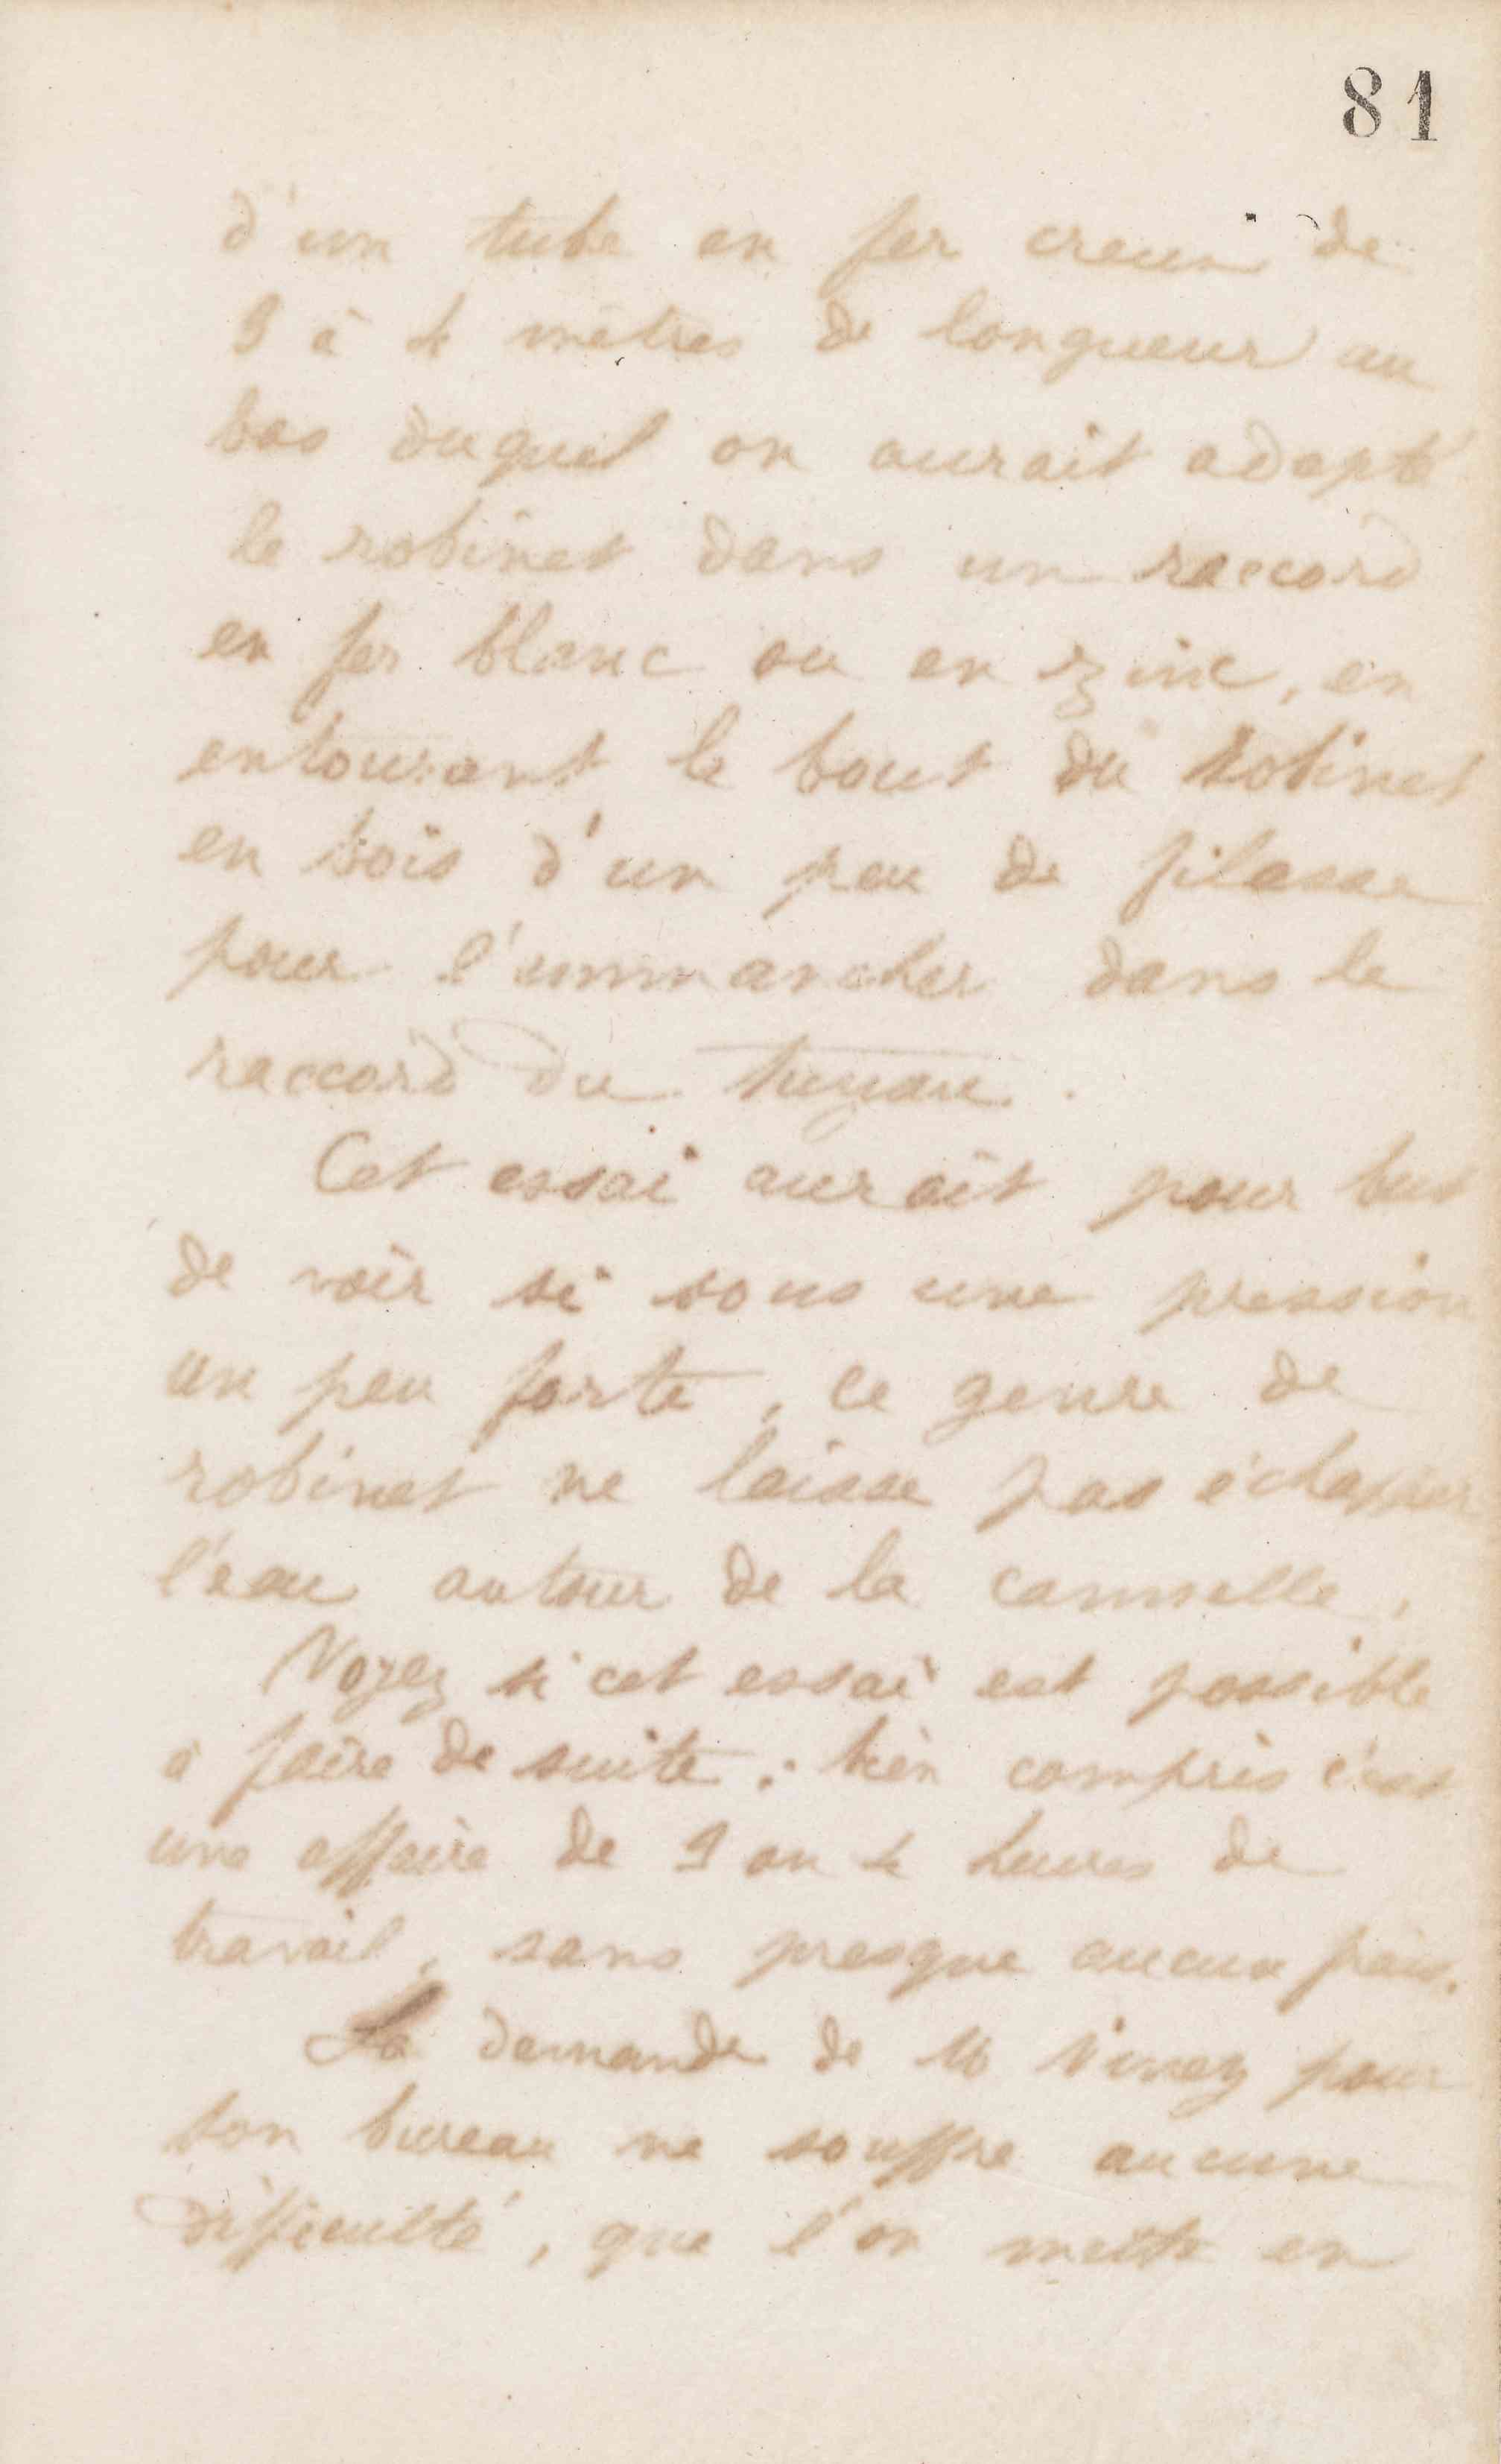 81
d'un tube en fer creux de
3 à 4 mètres de longueur au
bas duquel on aurait adapté
le robinet dans un raccord
en fer blanc ou en zinc, en
entourant le bout du robinet
en bois d'un peu de filasse
pour l'emmancher dans le
raccord du tuyau.
Cet essai aurait pour but
de voir si sous une pression
un peu forte, ce genre de
robinet ne laisse pas échapper
l'eau autour de la cannelle.
Voyez si cet essai est possible
à faire de suite ; bien compris c'est
une affaire de 3 ou 4 heures de
travail, sans presque aucun frais.
La demande de M pour
son bureau ne souffre aucune
difficulté, que l'on mette en